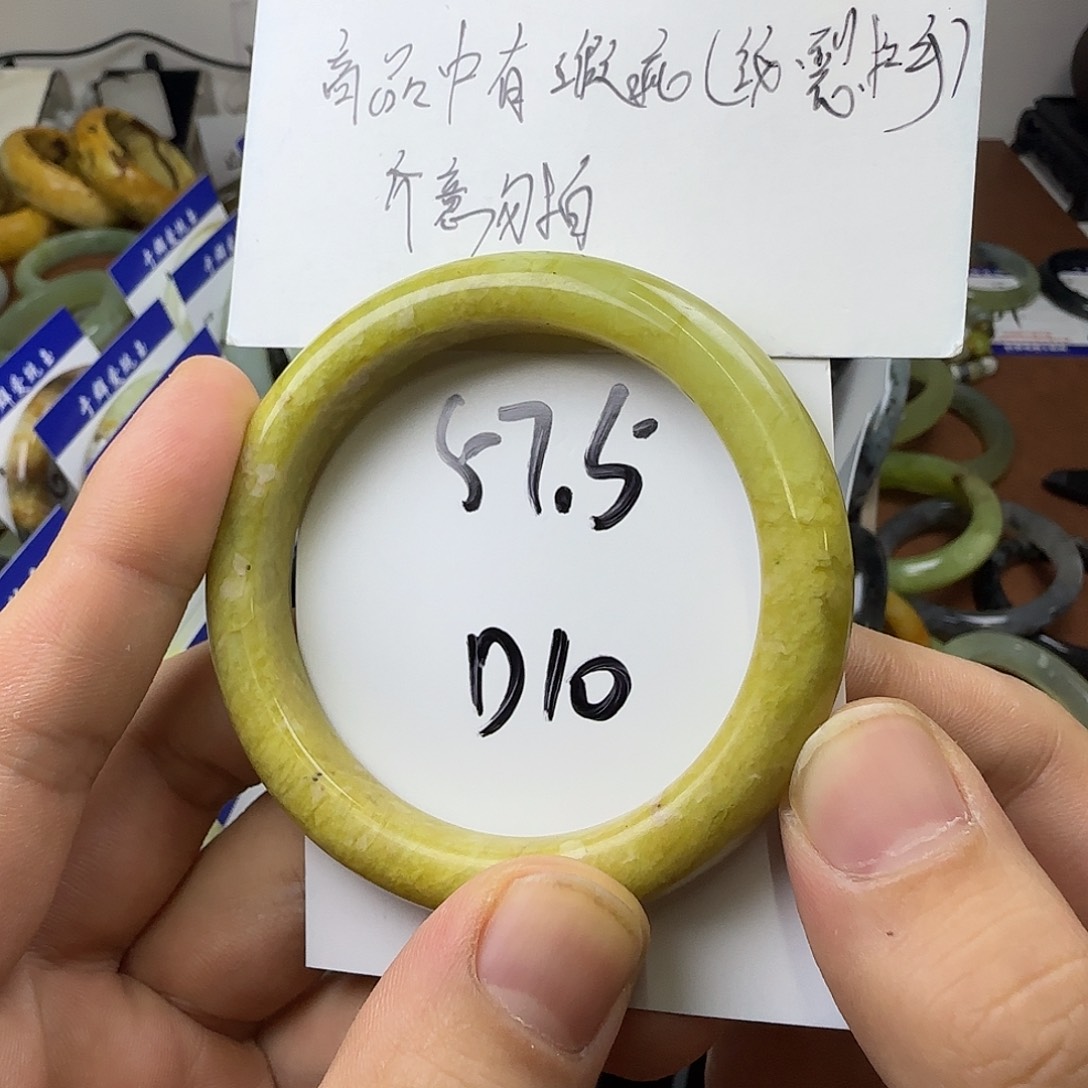 商品中有瑕疵(纹.裂.拉手)
介意勿拍
57.5
D10